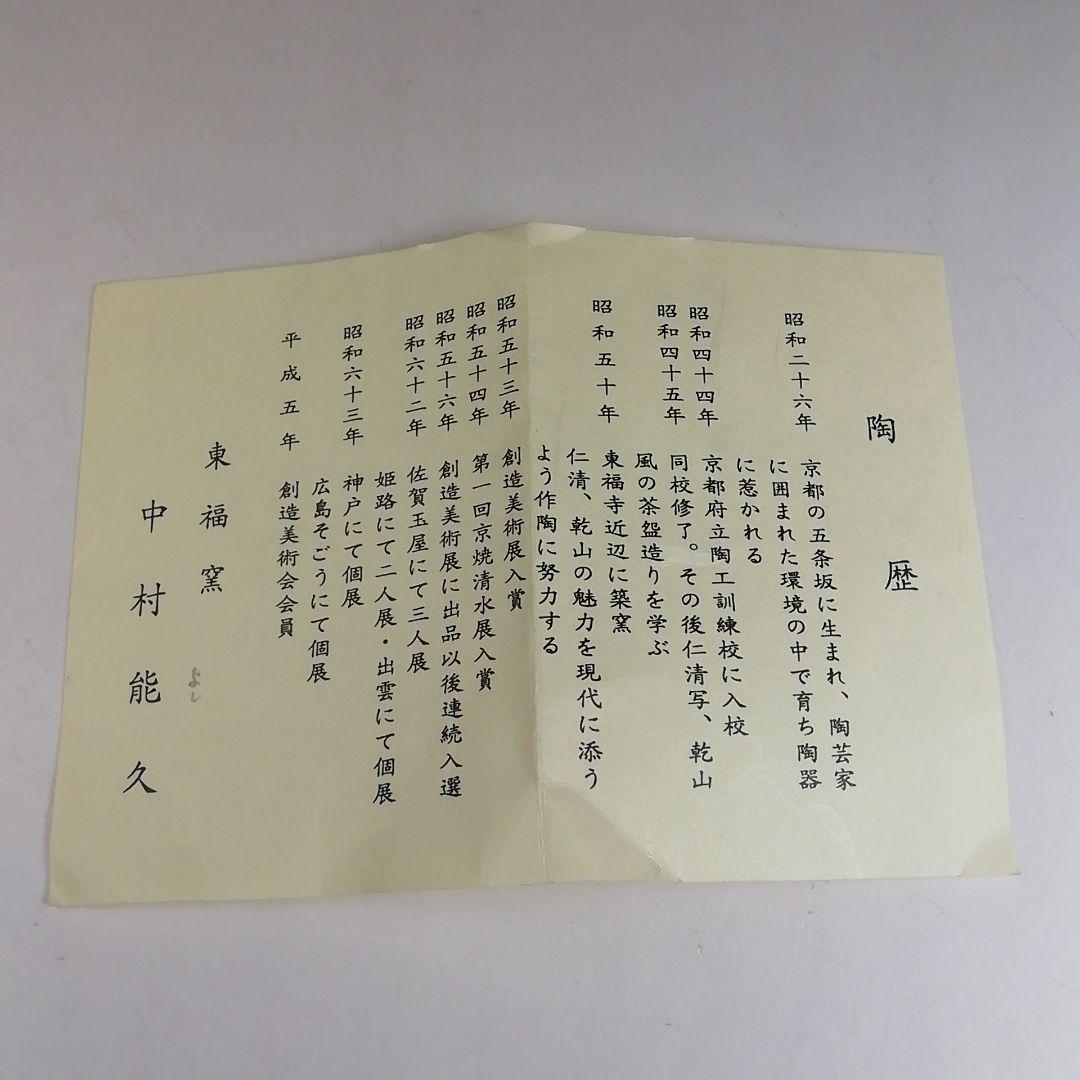 陶歴
昭和二十六年 京都の五条坂に生まれ、陶芸家
に囲まれた環境の中で育ち陶器
に惹かれる
昭和四十四年 京都府立陶工訓練校に入校
昭和四十五年 同校修了。その後仁清写、乾山
風の茶盌造りを学ぶ
昭和五十年 東福寺近辺に築窯
仁清、乾山の魅力を現代に添う
よう作陶に努力する
昭和五十三年 創造美術展入賞
昭和五十四年 第一回京焼清水展入賞
昭和五十六年 創造美術展に出品以後連続入選
昭和六十二年 佐賀玉屋にて三人展
姫路にて二人展・出雲にて個展
昭和六十三年 神戸にて個展
広島そごうにて個展
平成五年 創造美術会会員
東福窯
よし
中村能久